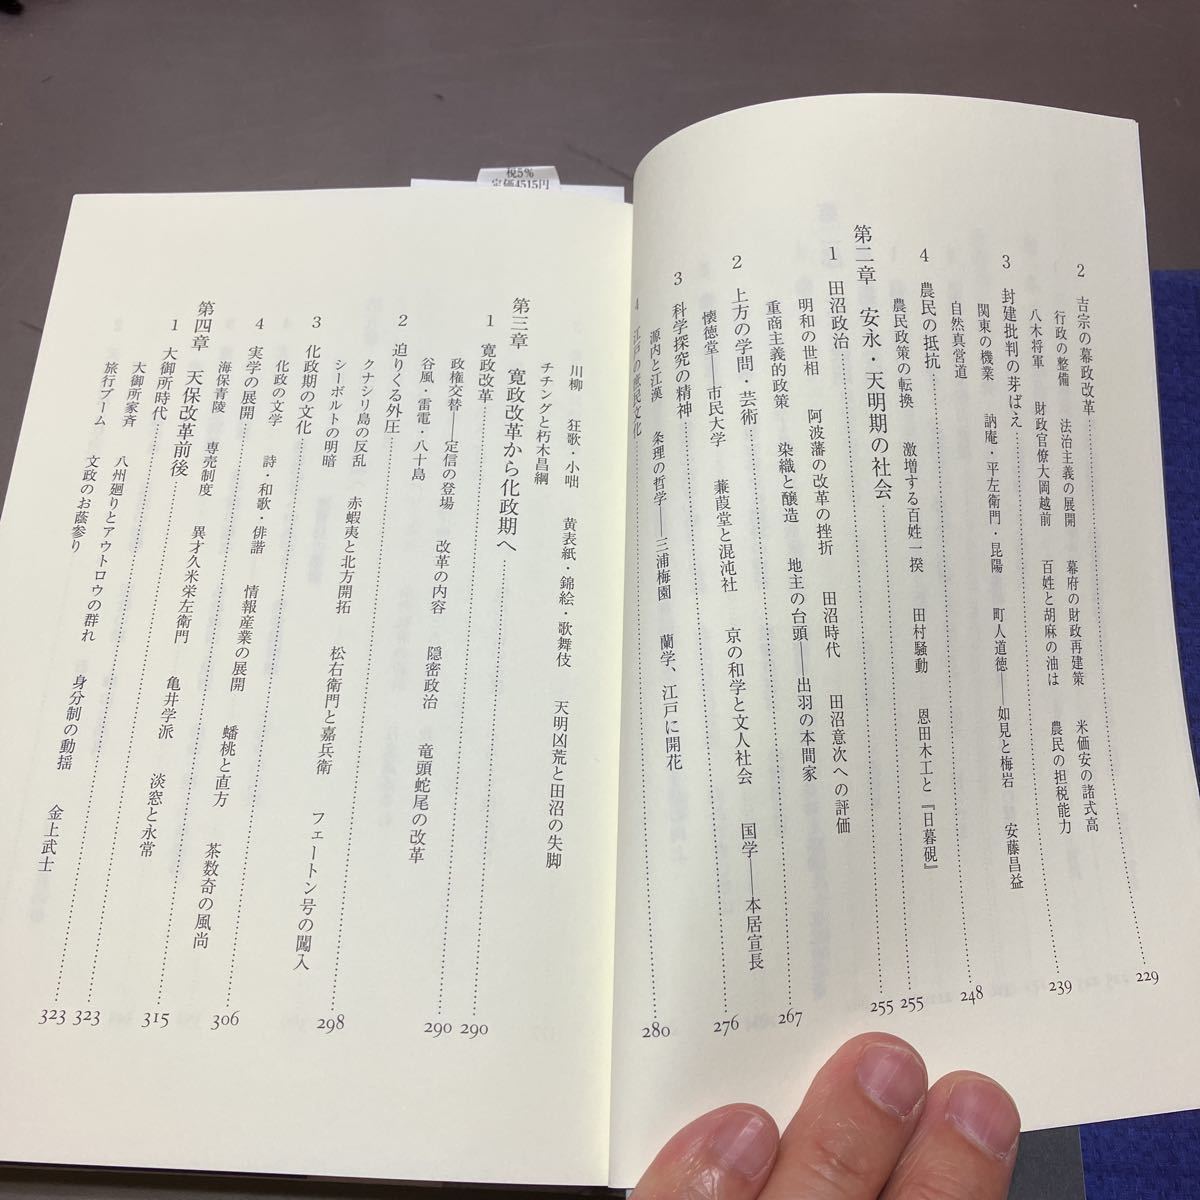 税5%
定価4515円
2 吉宗の幕政改革 229
行政の整備 法治主義の展開 幕府の財政再建策 米価安の諸式高
八木将軍 財政官僚大岡越前 百姓と胡麻の油は 農民の担税能力
3 封建批判の芽ばえ 239
関東の機業 訥庵・平左衛門・昆陽 町人道徳——如見と梅岩 安藤昌益
自然真営道
4 農民の抵抗 248
農民政策の転換 激増する百姓一揆 田村騒動 恩田木工と『日暮硯』
第二章 安永・天明期の社会 255
1 田沼政治 255
明和の世相 阿波藩の改革の挫折 田沼時代 田沼意次への評価
重商主義的政策 染織と醸造 地主の台頭——出羽の本間家
2 上方の学問・芸術 267
懐徳堂——市民大学 蒹葭堂と混沌社 京の和学と文人社会 国学——本居宣長
3 科学探究の精神 276
源内と江漢 条理の哲学——三浦梅園 蘭学、江戸に開花
4 江戸の庶民文化 280
川柳 狂歌・小咄 黄表紙・錦絵・歌舞伎 天明凶荒と田沼の失脚
チチングと朽木昌綱
第三章 寛政改革から化政期へ 290
1 寛政改革 290
政権交替——定信の登場 改革の内容 隠密政治 竜頭蛇尾の改革
谷風・雷電・八十島
2 迫りくる外圧 298
クナシリ島の反乱 赤蝦夷と北方開拓 松右衛門と嘉兵衛 フェートン号の闖入
シーボルトの明暗
3 化政期の文化 306
化政の文学 詩・和歌・俳諧 情報産業の展開 蟠桃と直方 茶数奇の風尚
4 実学の展開 315
海保青陵 専売制度 異才久米栄左衛門 亀井学派 淡窓と永常
第四章 天保改革前後 323
1 大御所時代 323
大御所家斉 八州廻りとアウトロウの群れ 身分制の動揺 金上武士
旅行ブーム 文政のお蔭参り